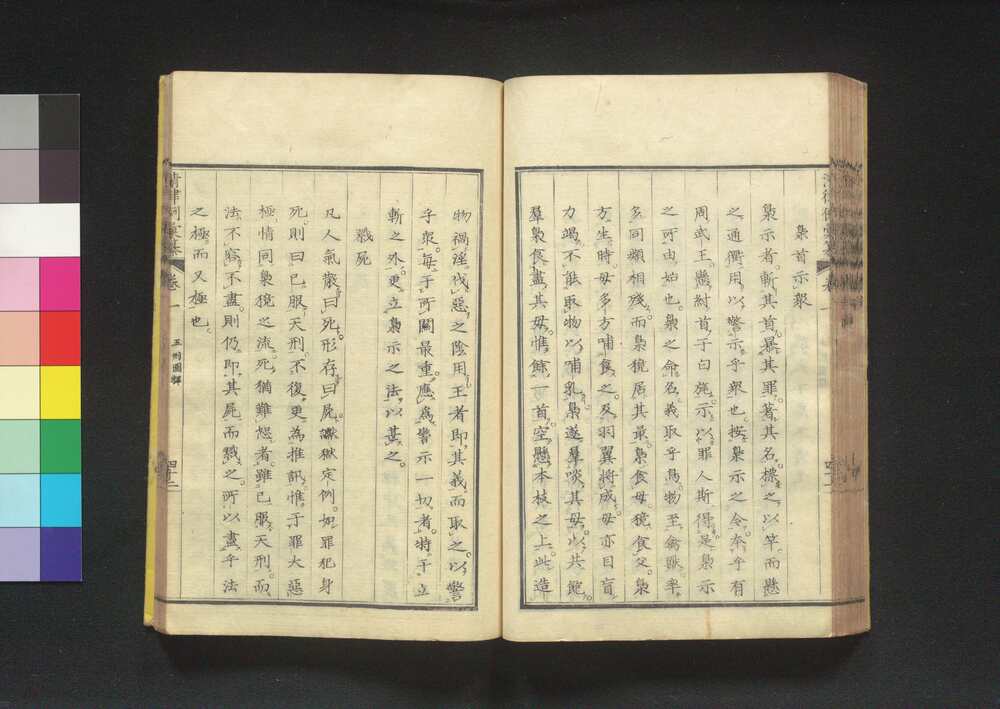 梟首示眾
梟示者。斬其首。暴其罪。著其名。標之以竿。而懸
之通衢。用以警示乎眾也。按梟示之令。奈乎有
周武王懸紂首于白旄。示以罪人斯得。是梟示
之所由始也。梟之命名。義取乎鳥物至禽獸卒。
多同類相殘。而梟獍居其最。梟食母。獍食父。梟
方生時。母多方哺食之。及羽翼將成。母亦目盲
力竭。不能取物以哺乳。梟遂羣啖其母。以共飽。
羣梟食盡其母。惟餘一首。空懸本枝之上。此造
物禍淫。伐惡之陰用。王者即其義而取之。以警
乎眾。每于所關最重。應為警示一切者。特于立
斬之外。更立梟示之法。以蓋之。
戮屍
凡人氣散曰死。形存曰屍。讞獄定例。如罪犯身
死。則曰已服天刑。不復更為推訊。惟于罪大惡
極。情同梟獍之流。死猶難恕者。雖已服天刑。而
法不容不盡。則仍即其屍而戮之。所以盡乎法
之極。而又極也。
卷一
五刑圖釋
四十二